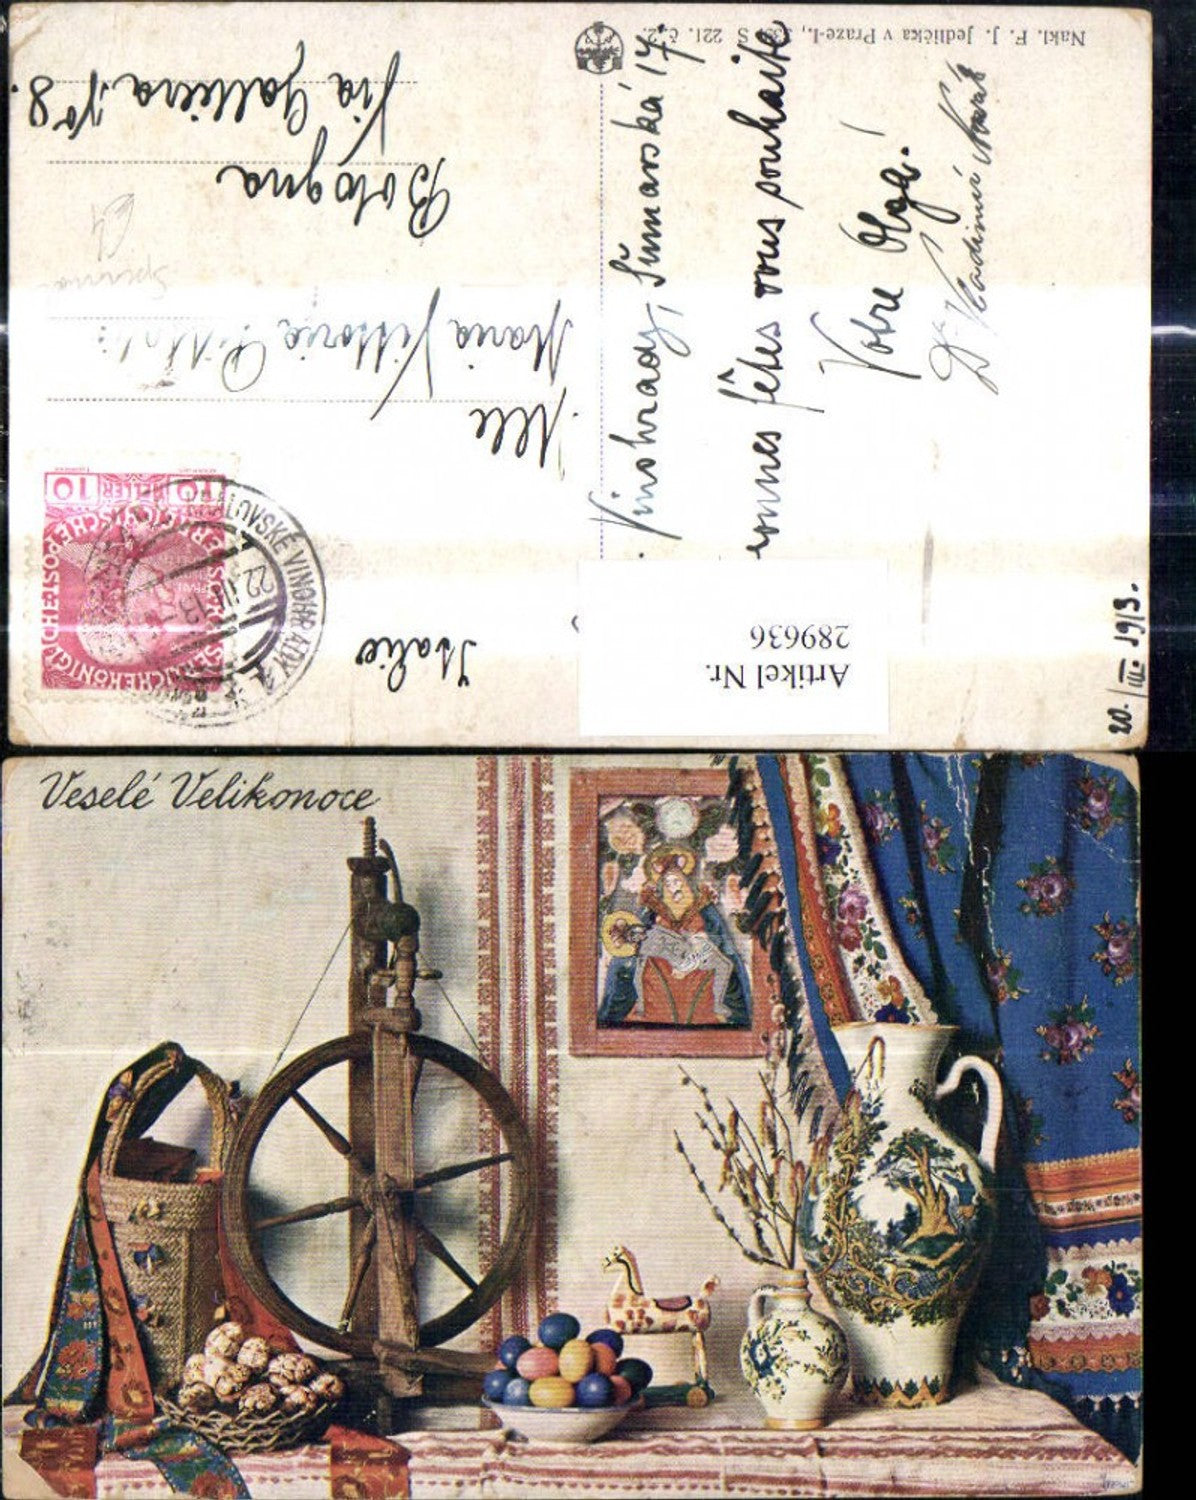 Nakl. F. J. Jedlička v Praze-I., 539, S 221. č. 2.
Vinohrady, Šumavská 17.
onnes fêtes vous souhaite
Votre Olga!
Dr Vladimír Novák
20./III. 1913.
Mlle
Maria Vittoria
Bologna
Via Galliera No 8.
Italie
10 HELLER 10
KRÁLOVSKÉ VINOHRADY
22.III.13
Artikel Nr.
289636
Veselé Velikonoce